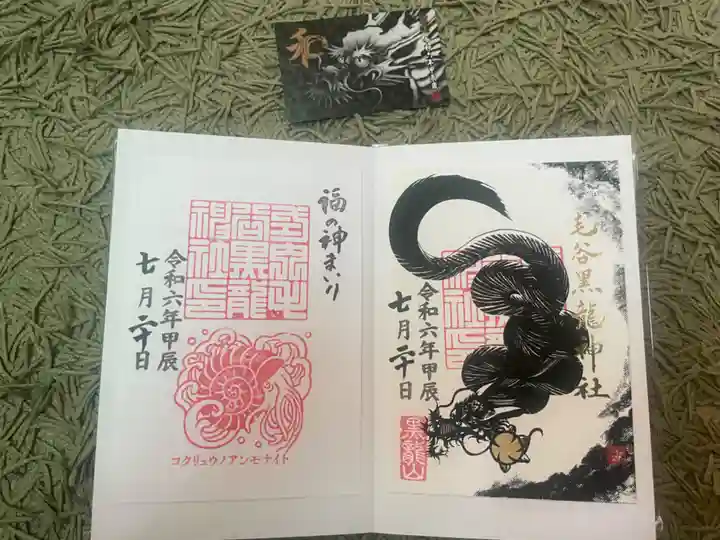 福の神まいり
毛谷黒龍神社
令和六年甲辰
七月二十日
コクリュウノアンモナイト
毛谷黒龍神社
令和六年甲辰
七月二十日
黒龍山